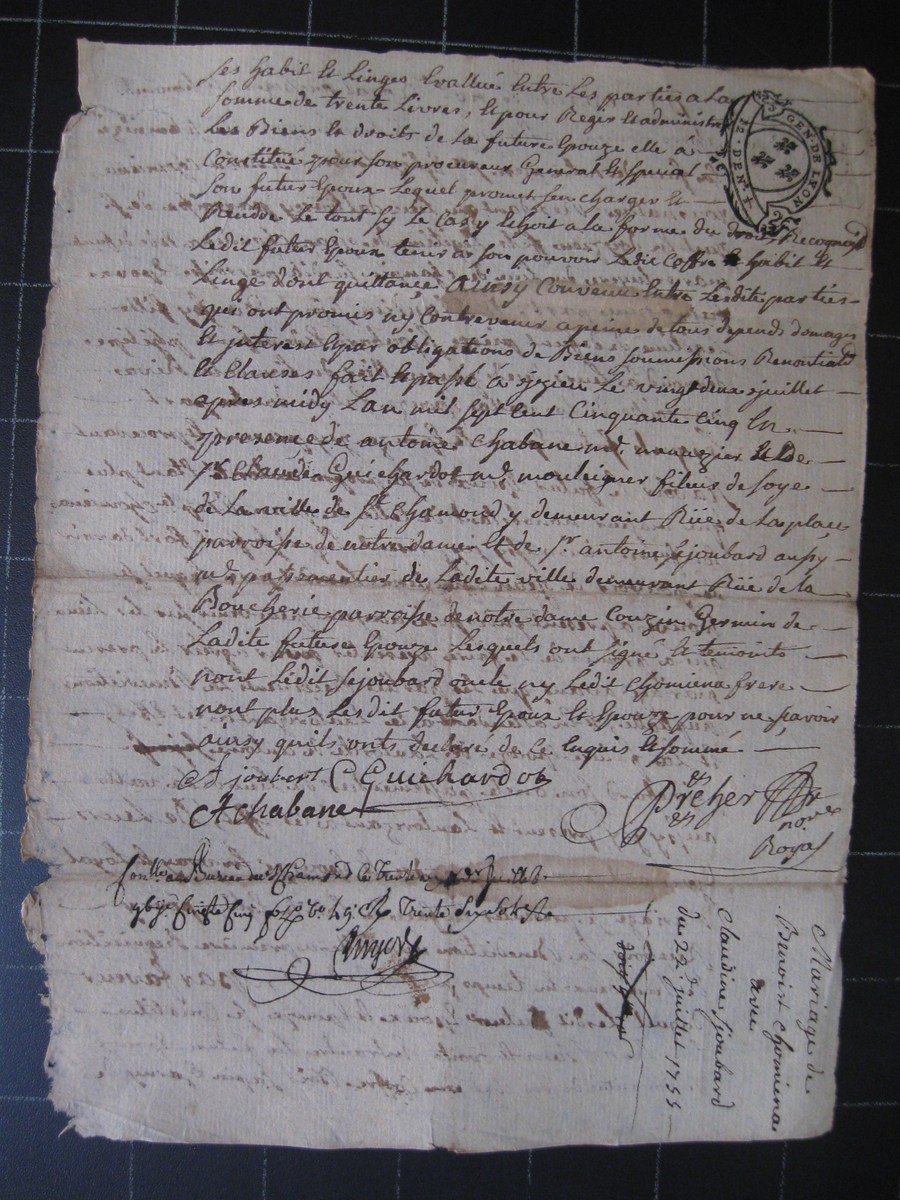 ses habit et Linges Evallué Entre Les parties a La
somme de trente Livres, et pour Reger et administrer
Les Biens et droits de La future Epouze elle á
Constitué pour son procureur General et spécial
son futur Epoux Lequel promet sen charger et
Rendre Le tout sy Le cas y Echoit a La forme du droit Recognoit
Ledit futur Epoux tenir a son pouvoir Ledit Coffre habit et
Linge dont quittance ainsy convenu Entre Lesdite parties
qui ont promis ny contrevenir a peine de tous depends domages
et interest Et par obligations de Biens soummissions Renontiat
et Clauses fait et passé á izieu Le vingt deux juillet
apres midy L'an mil sept cent Cinquante Cinq En
presence de antoine Chabane md et de
sr Claude Guichardot md moulinier fileur de soye
de La ville de St Chamond y demeurant Rüe de La place
parroisse de notre dame et de sr antoine sejoubard aussy
md de Ladite ville demeurant Rüe de la
Boucherie parroisse de notre dame Couzin Germin de
Ladite future Epouze Lesquels ont signé et temoints
nont Ledit sejoubard oncle ny Ledit Chomiena frere
nont plus Lesdit futur Epoux et Epouze pour ne sçavoir
ainsy quils onts declaré de ce Enquis et sommé
A joubert C Guichardot
A Chabane
Dreher
nore
Royal
GEN. DE LYON
Mariage de
Benoist Chomiena
avec
Claudine sejoubard
du 22e juillet 1755